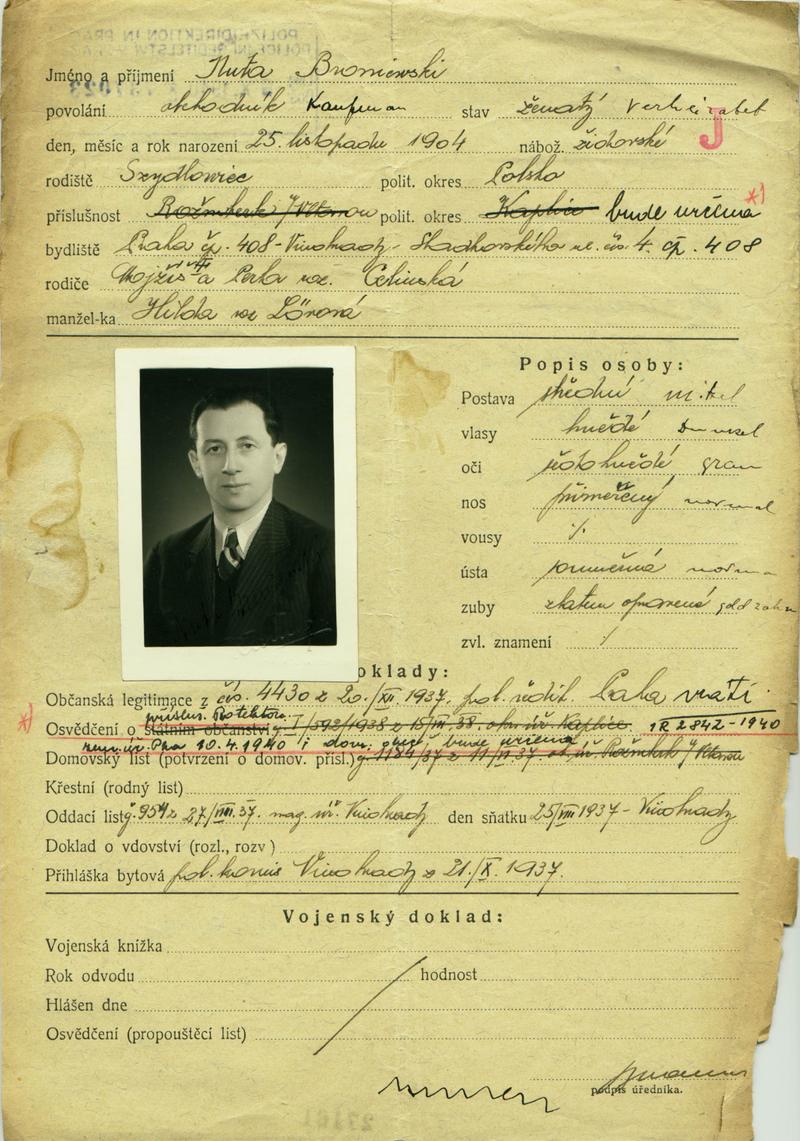 POLIZEIDIREKTION IN PRAG
POLICEJNÍ ŘEDITELSTVÍ V PRAZE
Jméno a příjmení Nuta Broniewski
povolání obchodník Kaufman stav ženatý verheiratet
J
den, měsíc a rok narození 25. listopadu 1904 nábož. židovské
rodiště Szydlowiec polit. okres Polsko
příslušnost Rožmberk /Vltavou polit. okres Kaplice bude určena *)
bydliště Praha čp. 408 - Vinohrady - ul. čís. 4. čp. 408
rodiče Mojžíš a Perla roz. Celinská
manžel-ka Hilda roz Löwová
Popis osoby:
Postava střední mittel
vlasy hnědé Dunkel
oči šedohnědé grau
nos přiměřený normal
vousy ·/.
ústa normal
zuby zlatem opravené gold
zvl. znamení /
oklady:
Občanská legitimace z čís. 4430 z 20./XII. 1937. pol. ředit. Praha vrátí
*) Osvědčení o státním občanství č. I/592/1938 z 15/III. 38. okr. úř. Kaplice. 1R 2842-1940
příslus. Protektor.
10.4.1940 i dom. bude určena
Domovský list (potvrzení o domov. přísl.) č. 1184/37 z Rožmberk /Vltavou
Křestní (rodný list)
Oddací list č. 954 z 27/VIII. 37. mag. úř. Vinohrady den sňatku 25/VIII 1937 - Vinohrady
Doklad o vdovství (rozl., rozv )
Přihláška bytová pol. komis Vinohrady z 21./X. 1937.
Vojenský doklad:
Vojenská knížka
Rok odvodu hodnost
Hlášen dne
Osvědčení (propouštěcí list)
podpis úředníka.